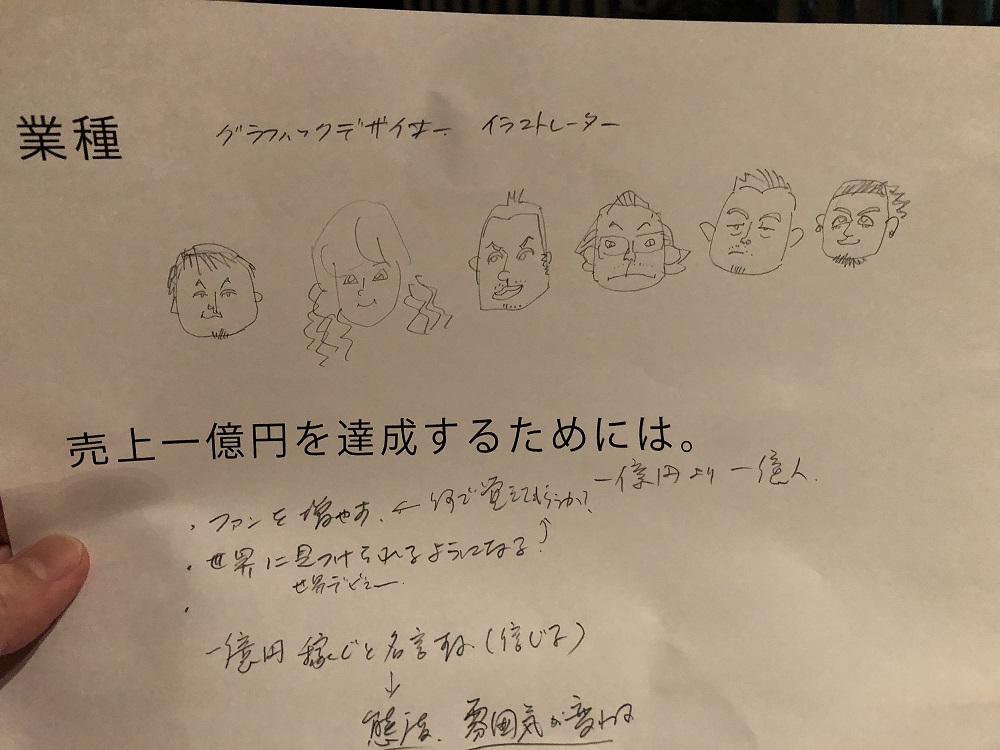 業種 グラフィックデザイナー イラストレーター
売上一億円を達成するためには。
一億円より 一億人.
・ファンを増やす. ← 何で覚えてもらうか?
・世界に見つけられるようになる
世界デビュー
・
一億円 稼ぐと名言する (信じる)
↓
態度、雰囲気が変わる